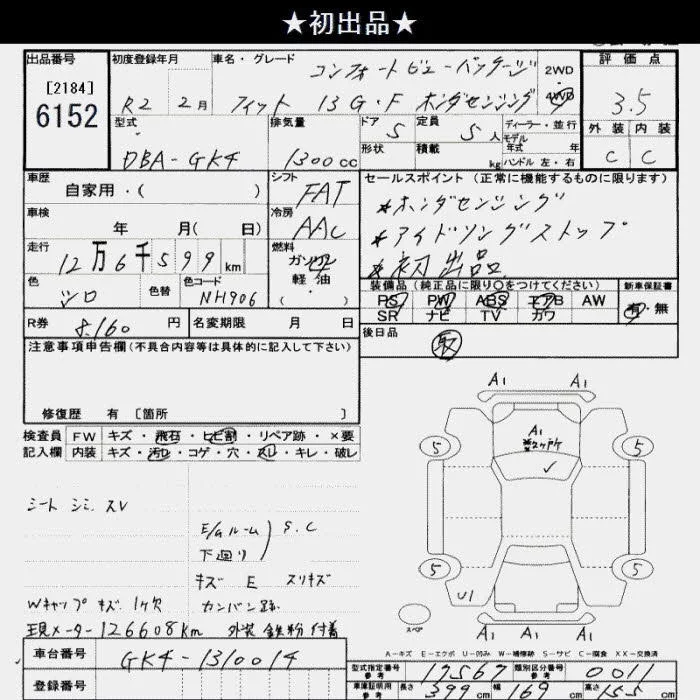 ★初出品★
出品番号
[2184]
6152
初度登録年月
R2 2月
車名・グレード
コンフォートビューパッケージ
フィット 13G・F ホンダセンシング
2WD
・
4WD
評価点
3.5
外装 内装
C C
型式
DBA-GK4
排気量
1300cc
ドア 5
形状
定員 5人
積載 kg
ディーラー・並行
モデル年式 年
ハンドル 左・右
車歴
自家用・( )
シフト
FAT
車検
年 月( 日)
冷房
AAC
走行
12万6千599km
燃料
ガソリン
軽油
( ・ )
色
シロ
色替
色コード
NH906
R券 8,160 円
名変期限 月 日
セールスポイント(正常に機能するものに限ります)
*ホンダセンシング
*アイドリングストップ
*初出品
装備品(純正品に限り○をつけてください)
PS PW ABS エアB AW
SR ナビ TV カワ
新車保証書
有・無
後日品
取
注意事項申告欄(不具合内容等は具体的に記入して下さい)
修復歴 有 [箇所 ]
検査員
記入欄
FW キズ・飛石・ヒビ割・リペア跡・×要
内装 キズ・汚レ・コゲ・穴・スレ・キレ・破レ
シート シミ、スレ
E/gルーム
下廻り
S.C
キズ E スリキズ
Wキャップ キズ、1ケ欠
カンバン跡
現メーター126608km 外装 鉄粉 付着
A1 A1
A1
5 5
5 5
U1
A1 A1 A1
スペア
A-キズ E-エクボ U-凹み W-補修跡 S-サビ C-腐食 XX-交換済
車台番号
GK4-1310014
登録番号
型式指定番号
参考
17567
類別区分番号
参考
0011
車庫証明用
参考
長さ 399cm
幅 169cm
高さ 155cm